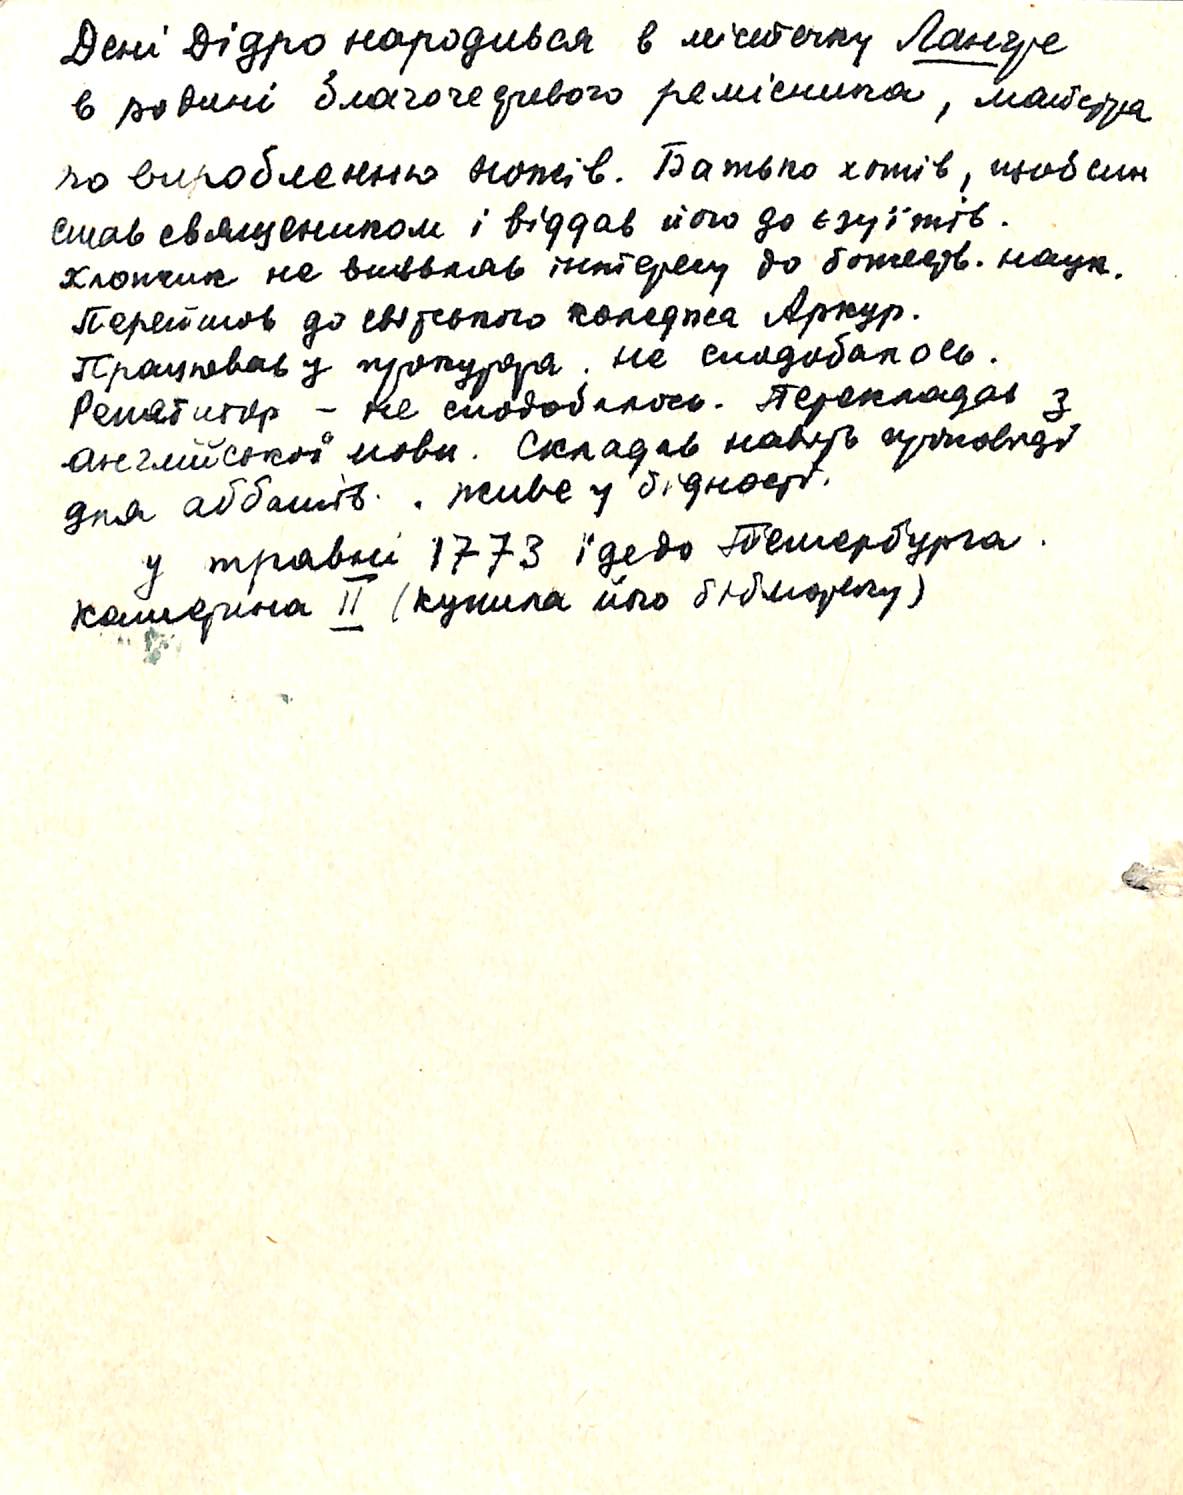 Дені Дідро народився в містечку Лангре
в родині благочестивого ремісника, майстра
по виробленню ножів. Батько хотів, щоб син
став священиком і віддав його до єзуїтів.
Хлопчик не виявляв інтересу до божеств. наук.
Перейшов до світського коледжа Аркур.
Працював у прокурора. не сподобалось.
Репетитор – не сподобалось. Перекладав з
англійської мови. Складав навіть проповіді
для аббатів. . живе у бідності.
у травні 1773 їде до Петербурга.
Катерина II (купила його бібліотеку)